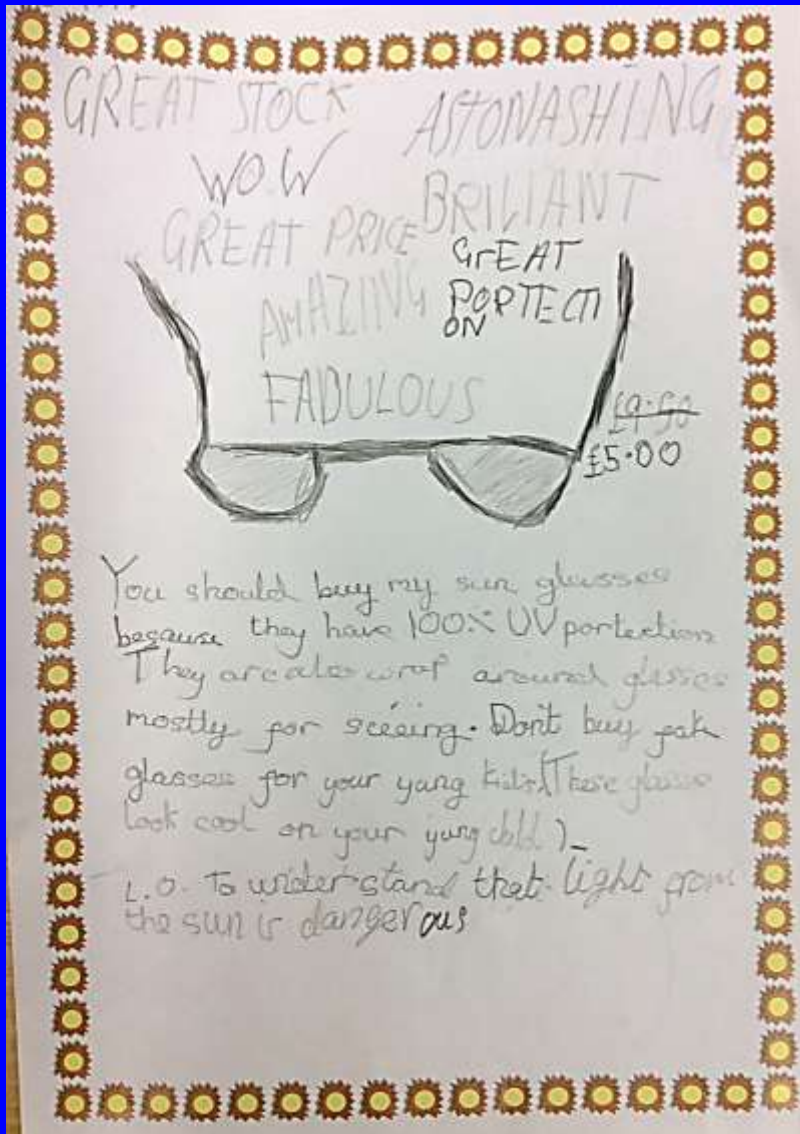 GREAT STOCK
ASTONASHING
WOW
BRILIANT
GREAT PRICE
GrEAT
PORTECTI
ON
AMAZING
FADULOUS
£9.50
£5.00
You should buy my sun glasses
because they have 100% UV portection
They are also wraf around glasses
mostly for sceeing. Don't buy fak
glasses for your yung kids (These glasse
look cool on your yung child)
L.O. To understand that light from
the sun is dangerous